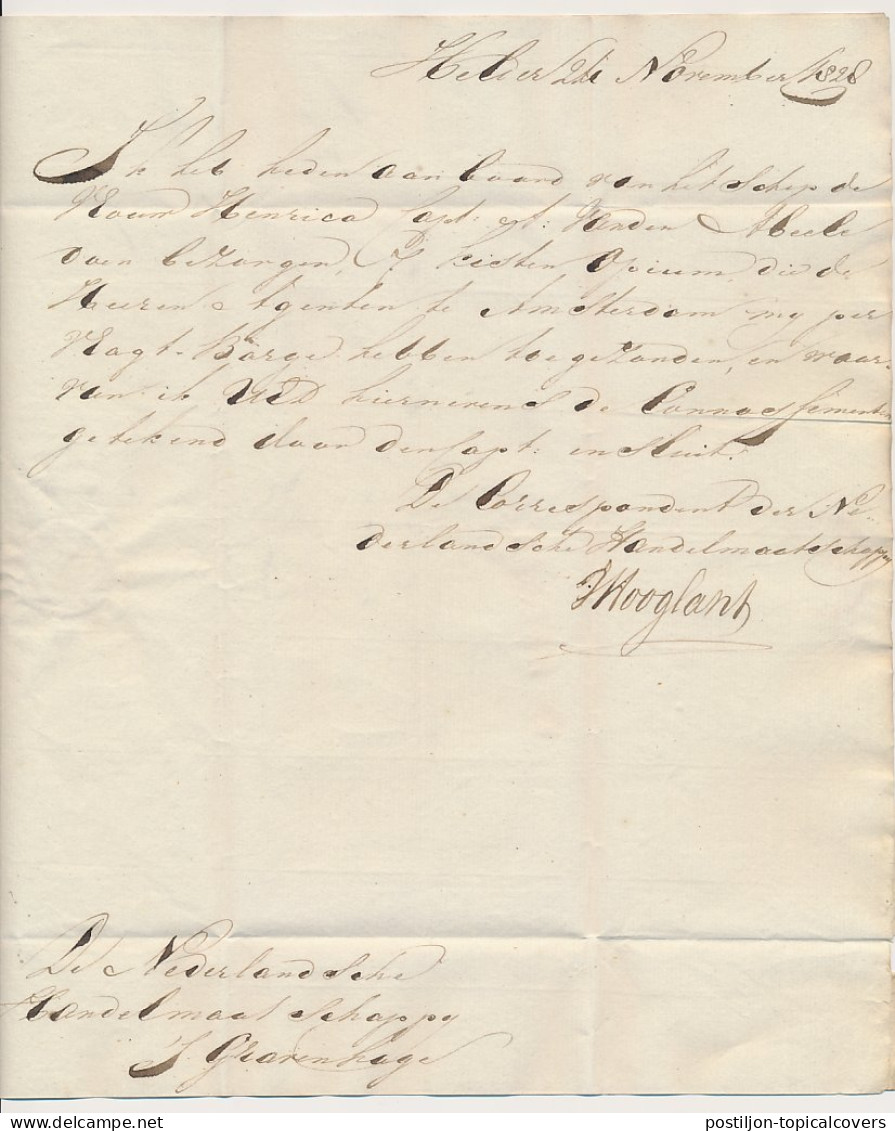 Helder November 1828
Ik heb heden aan boord van het schip de
Vrouw Henrica Capt: A: Vanden Abeele
doen bezorgen, 7 kisten Opium, die de
Heeren Agenten te Amsterdam my per
Vragt-Barge hebben toegezonden, en waar-
van ik UED hiernevens de Connossementen
getekend door den Capt: insluit.
De Correspondent der Ne-
derlandsche Handelmaatschappy
Hooglant
De Nederlandsche
Handelmaatschappy
S Gravenhage
postiljon-topicalcovers